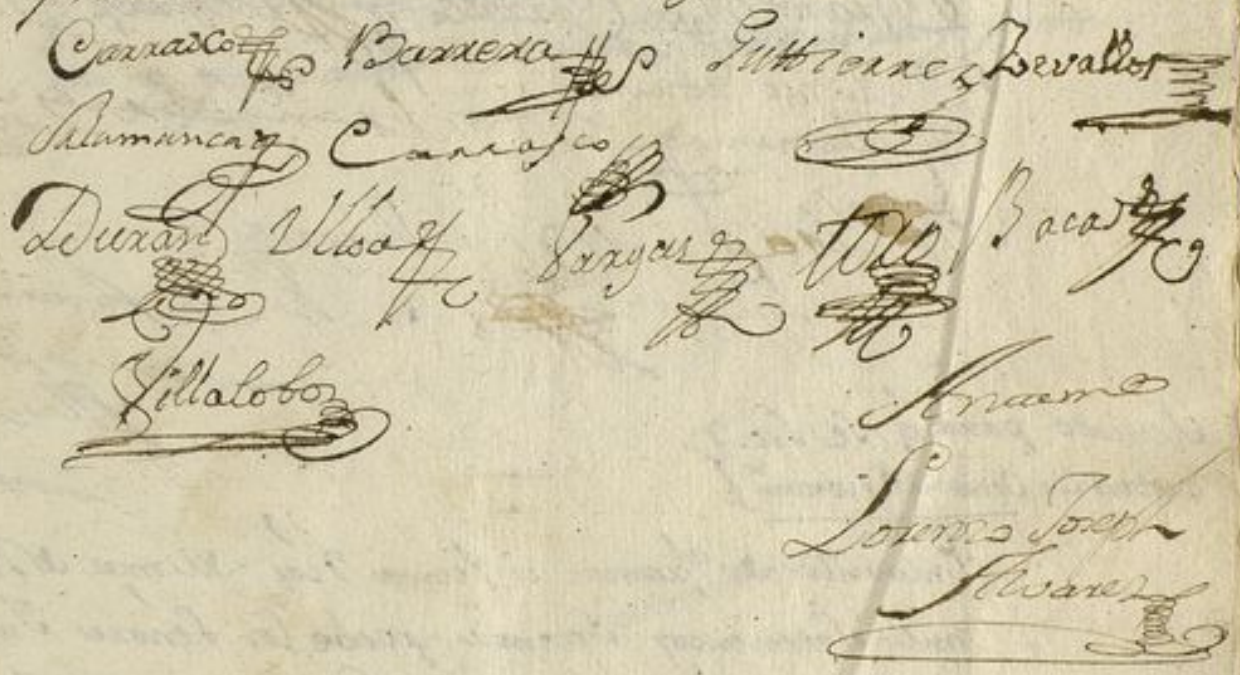 Carrasco Barrera Guttierrez Zevallos
Salamanca Carrasco
Duran Ulloa Vargas Toro Bacas
Villalobos
Ante mi
Lorenzo Joseph
Alvarez